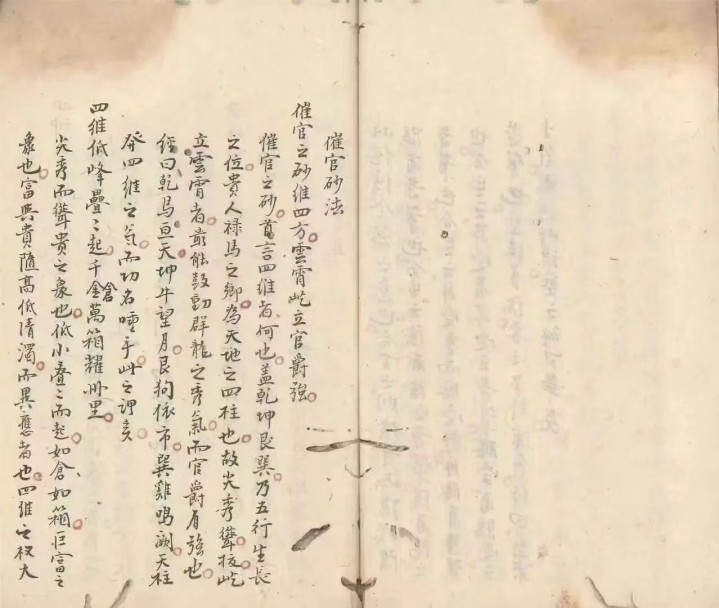 催官砂法
催官之砂維四方雲霄屹立官爵強
催官之砂首言四維者何也蓋乾坤艮巽乃五行生長
之位貴人祿馬之鄉為天地之四柱也故尖秀聳拔屹
立雲霄者最能鼓動群龍之秀氣而官爵有強也
經曰乾馬亘天坤牛望月艮狗依市巽雞鳴闕天柱
發四維之氣而功名唾手此之謂矣
四維低峰疊〻起千倉金萬箱耀州里
尖秀而聳貴之象也低小叠〻而起如倉如箱巨富之
象也富與貴隨高低清濁而異應者也四維之權大